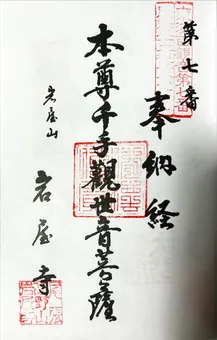 第七番
奉納経
本尊千手觀世音菩薩
岩屋山
岩屋寺